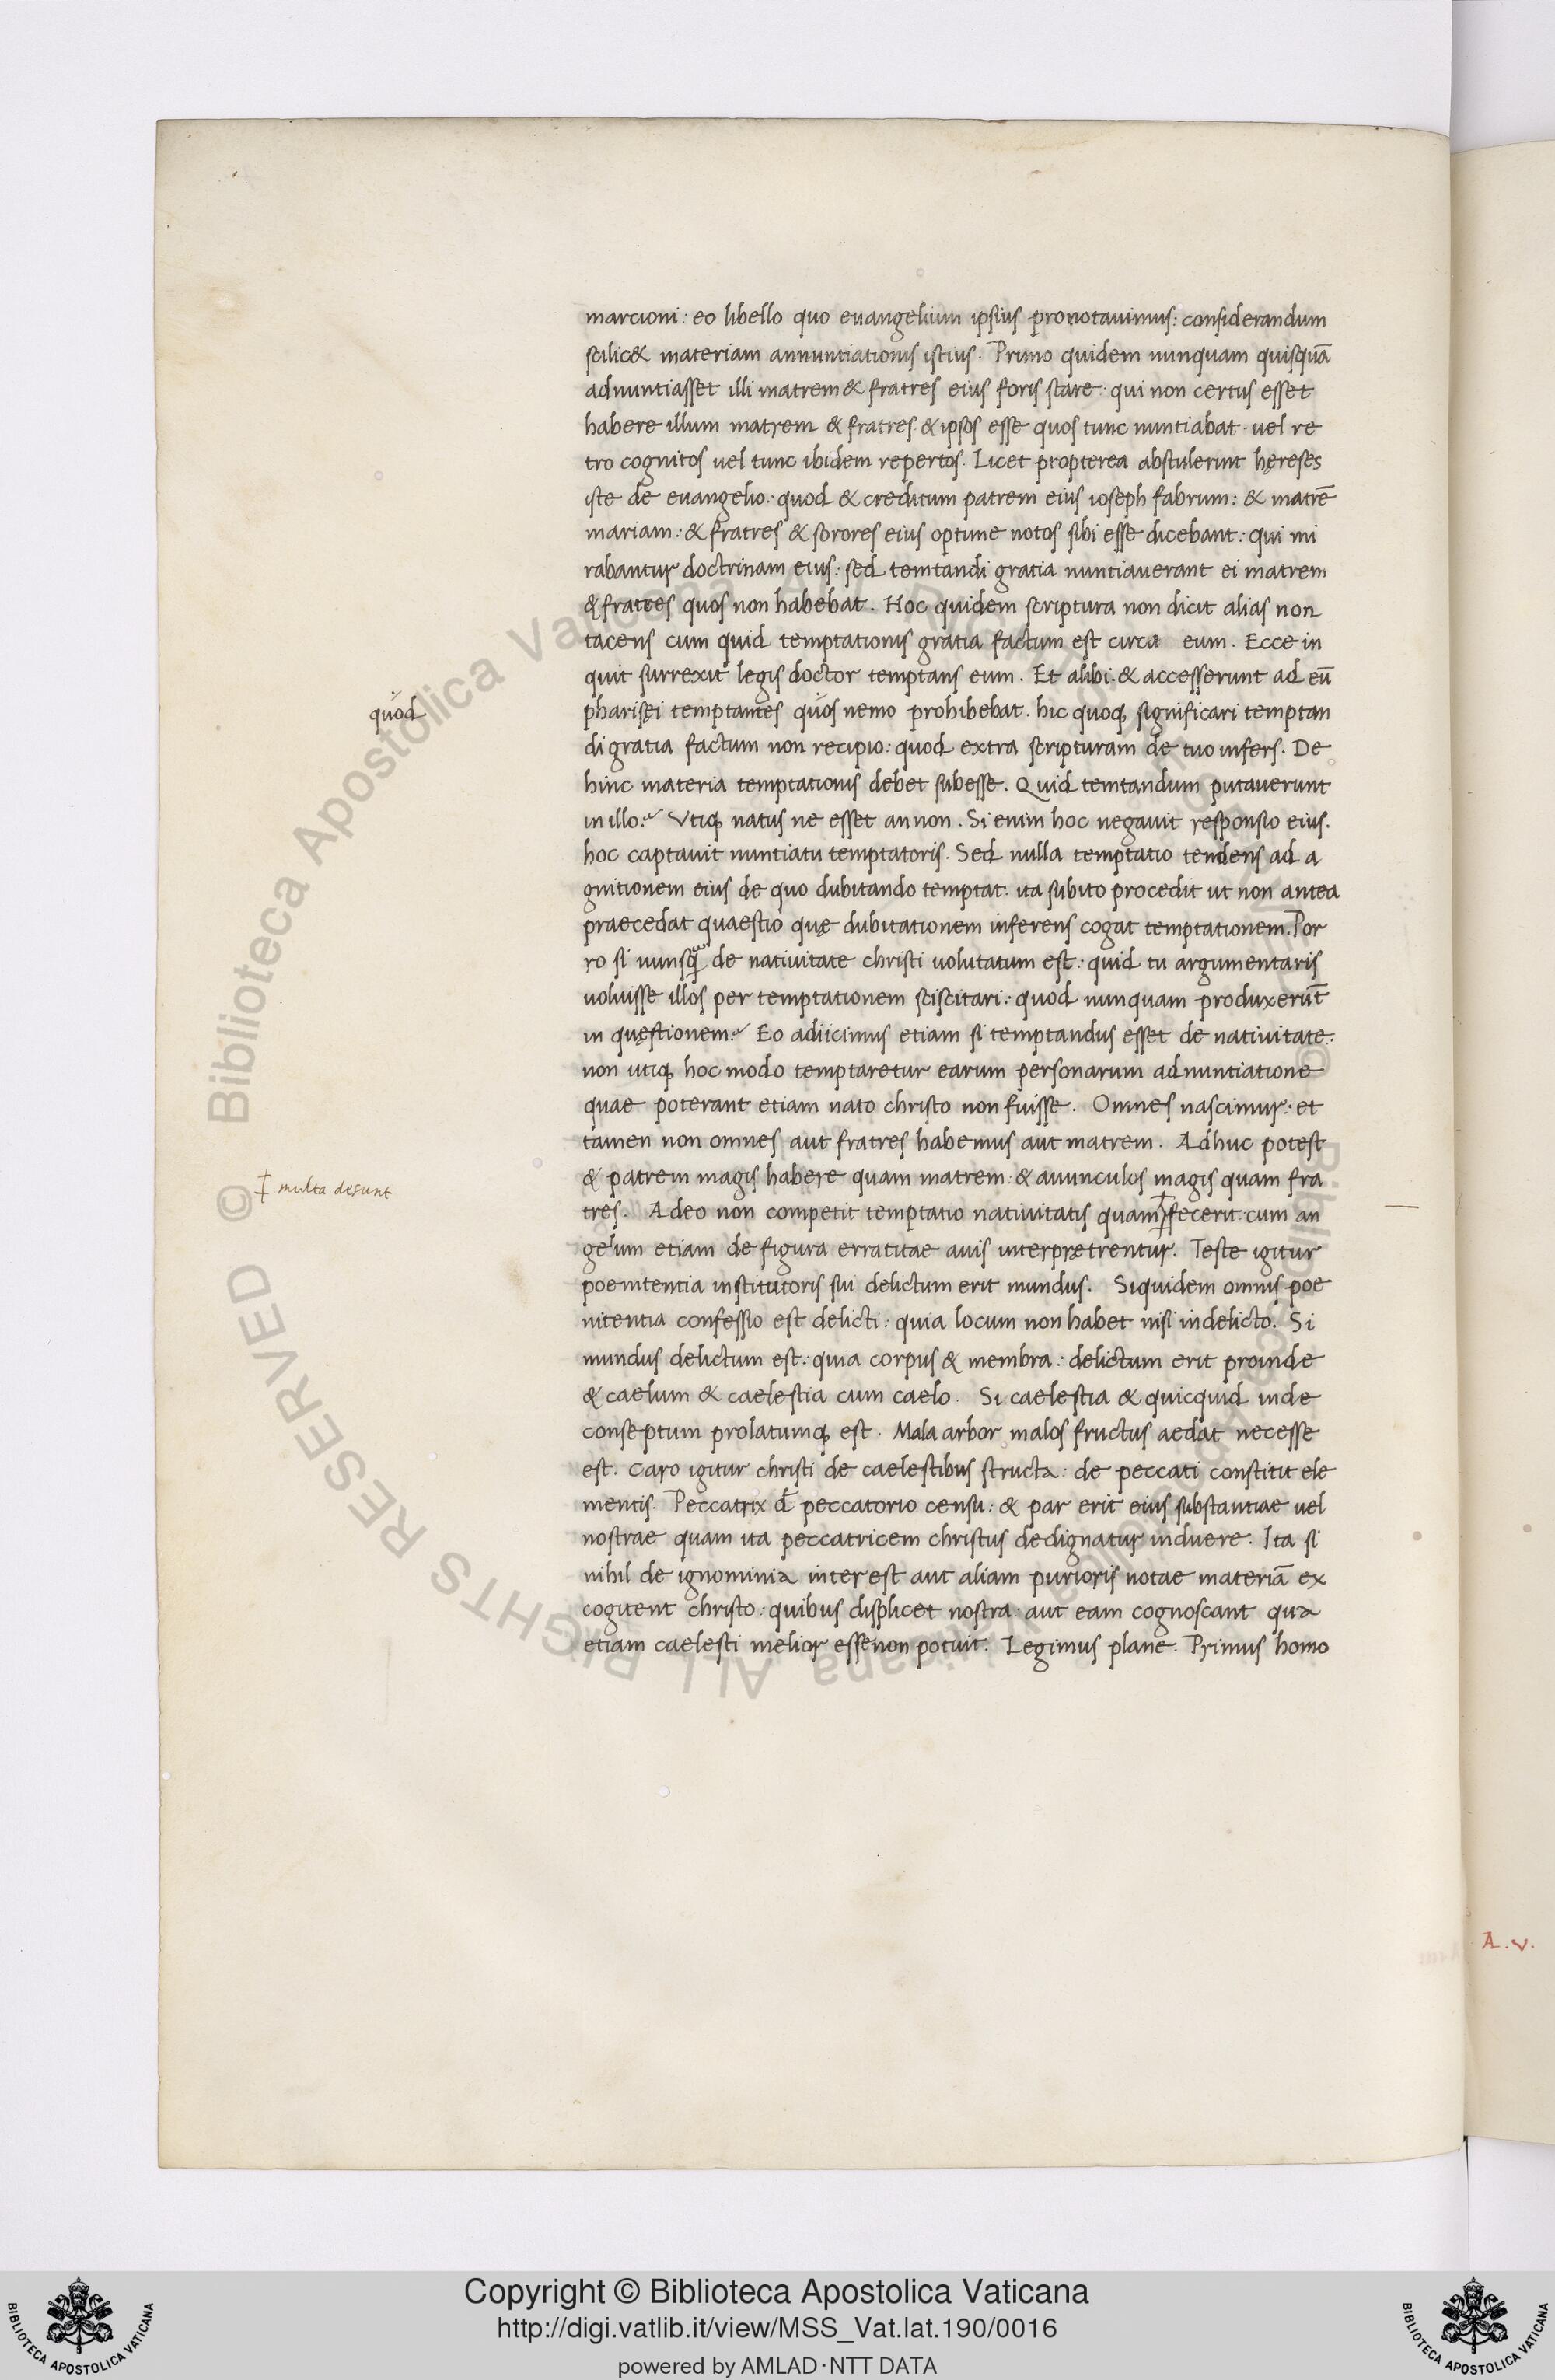 marcioni: eo libello quo euangelium ipsius pronotauimus: considerandum
scilic& materiam annuntiationis istius. Primo quidem nunquam quisquā
adnuntiasset illi matrem & fratres eius foris stare: qui non certus esset
habere illum matrem & fratres & ipsos esse quos tunc nuntiabat. uel re
tro cognitos uel tunc ibidem repertos. Licet propterea abstulerint hęreses
iste de euangelio: quod & creditum patrem eius ioseph fabrum: & matrē
mariam: & fratres & sorores eius optime notos sibi esse dicebant: qui mi
rabantur doctrinam eius: sed temtandi gratia nuntiauerant ei matrem
& fratres quos non habebat. Hoc quidem scriptura non dicit alias non
tacens cum quid temptationis gratia factum est circa eum. Ecce in
quit surrexit legis doctor temptans eum. Et alibi. & accesserunt ad eū
quod
pharisęi temptantes quos nemo prohibebat. hic quoq; significari temptan
di gratia factum non recipio: quod extra scripturam de tuo infers. De
hinc materia temptationis debet subesse. Quid temtandum putauerunt
in illo? Vtiq; natus ne esset an non. Si enim hoc negauit responsio eius.
hoc captauit nuntiatu temptatoris. Sed nulla temptatio tendens ad a
gnitionem eius de quo dubitando temptat. ita subito procedit ut non antea
praecedat quaestio quę dubitationem inferens cogat temptationem. Por
ro si nunsq̃ de natiuitate christi uolutatum est: quid tu argumentaris
uoluisse illos per temptationem sciscitari: quod nunquam produxerūt
in quęstionem? Eo adiicimus etiam si temptandus esset de natiuitate:
non utiq; hoc modo temptaretur earum personarum adnuntiatione
quae poterant etiam nato christo non fuisse. Omnes nascimur: et
tamen non omnes aut fratres habemus aut matrem. Adhuc potest
& patrem magis habere quam matrem: & auunculos magis quam fra
‡ multa desunt
tres. Adeo non competit temptatio natiuitatis quam ‡ fecerit: cum an
gelum etiam de figura erraticae auis interpretrentur. Teste igitur
poenitentia institutoris sui delictum erit mundus. Siquidem omnis poe
nitentia confessio est delicti: quia locum non habet nisi in delicto. Si
mundus delictum est: quia corpus & membra: delictum erit proinde
& caelum & caelestia cum caelo. Si caelestia & quicquid inde
conseptum prolatumq; est. Mala arbor malos fructus aedat necesse
est. Caro igitur christi de caelestibus structa: de peccati constitit ele
mentis. Peccatrix đ peccatorio censu: & par erit eius substantiae uel
nostrae quam ita peccatricem christus dedignatur induere. Ita si
nihil de ignominia interest aut aliam purioris notae materiā ex
cogitent christo: quibus displicet nostra: aut eam cognoscant qua
etiam caelesti melior esse non potuit. Legimus plane. Primus homo
A.v.
© Biblioteca Apostolica Vaticana ALL RIGHTS RESERVED
Copyright © Biblioteca Apostolica Vaticana
http://digi.vatlib.it/view/MSS_Vat.lat.190/0016
powered by AMLAD·NTT DATA
BIBLIOTECA APOSTOLICA VATICANA
BIBLIOTECA APOSTOLICA VATICANA